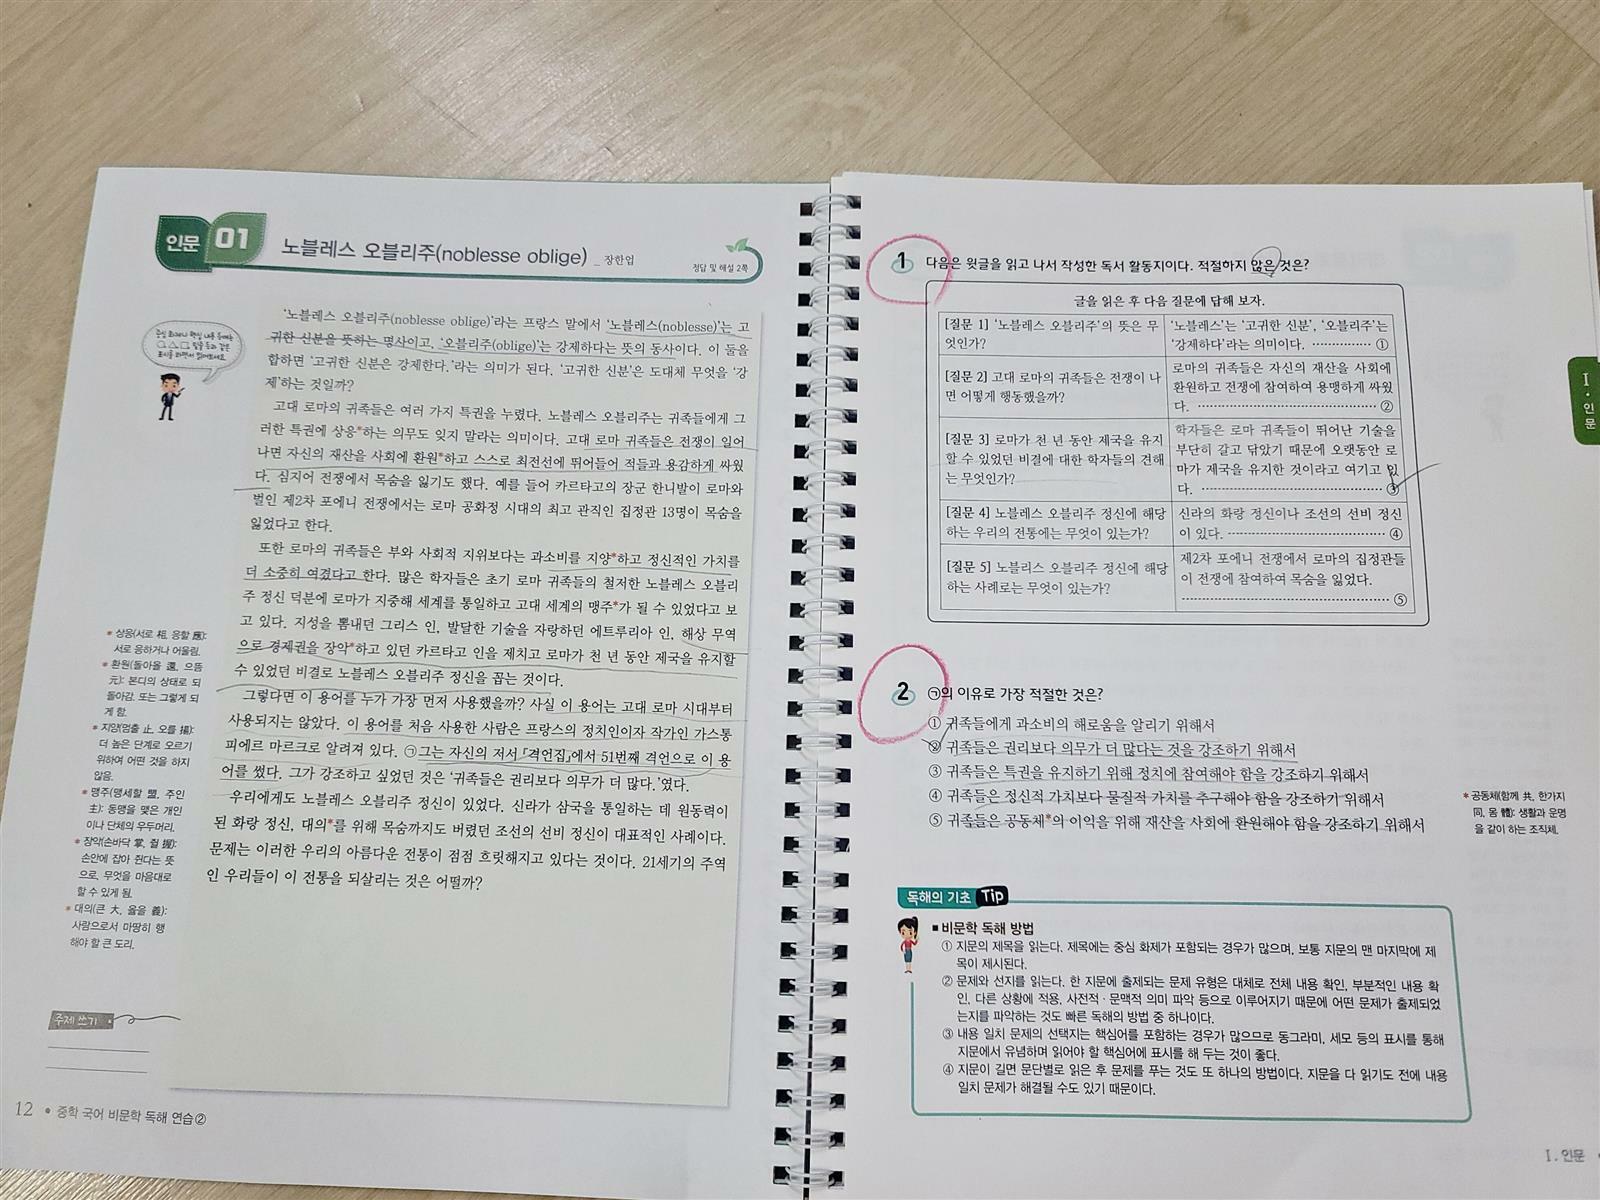 인문 01
노블레스 오블리주(noblesse oblige) _ 장한업
정답 및 해설 2쪽
중심 화제나 핵심 내용 등에는
○, △, □ 밑줄 등과 같은
표시를 하면서 읽어보세요.
'노블레스 오블리주(noblesse oblige)'라는 프랑스 말에서 '노블레스(noblesse)'는 고
귀한 신분을 뜻하는 명사이고, '오블리주(oblige)'는 강제하다는 뜻의 동사이다. 이 둘을
합하면 '고귀한 신분은 강제한다.'라는 의미가 된다. '고귀한 신분'은 도대체 무엇을 '강
제'하는 것일까?
고대 로마의 귀족들은 여러 가지 특권을 누렸다. 노블레스 오블리주는 귀족들에게 그
러한 특권에 상응*하는 의무도 잊지 말라는 의미이다. 고대 로마 귀족들은 전쟁이 일어
나면 자신의 재산을 사회에 환원*하고 스스로 최전선에 뛰어들어 적들과 용감하게 싸웠
다. 심지어 전쟁에서 목숨을 잃기도 했다. 예를 들어 카르타고의 장군 한니발이 로마와
벌인 제2차 포에니 전쟁에서는 로마 공화정 시대의 최고 관직인 집정관 13명이 목숨을
잃었다고 한다.
또한 로마의 귀족들은 부와 사회적 지위보다는 과소비를 지양*하고 정신적인 가치를
더 소중히 여겼다고 한다. 많은 학자들은 초기 로마 귀족들의 철저한 노블레스 오블리
주 정신 덕분에 로마가 지중해 세계를 통일하고 고대 세계의 맹주*가 될 수 있었다고 보
고 있다. 지성을 뽐내던 그리스 인, 발달한 기술을 자랑하던 에트루리아 인, 해상 무역
으로 경제권을 장악*하고 있던 카르타고 인을 제치고 로마가 천 년 동안 제국을 유지할
수 있었던 비결로 노블레스 오블리주 정신을 꼽는 것이다.
그렇다면 이 용어를 누가 가장 먼저 사용했을까? 사실 이 용어는 고대 로마 시대부터
사용되지는 않았다. 이 용어를 처음 사용한 사람은 프랑스의 정치인이자 작가인 가스통
피에르 마르크로 알려져 있다. ㉠그는 자신의 저서 「격언집」에서 51번째 격언으로 이 용
어를 썼다. 그가 강조하고 싶었던 것은 '귀족들은 권리보다 의무가 더 많다.'였다.
우리에게도 노블레스 오블리주 정신이 있었다. 신라가 삼국을 통일하는 데 원동력이
된 화랑 정신, 대의*를 위해 목숨까지도 버렸던 조선의 선비 정신이 대표적인 사례이다.
문제는 이러한 우리의 아름다운 전통이 점점 흐릿해지고 있다는 것이다. 21세기의 주역
인 우리들이 이 전통을 되살리는 것은 어떨까?
* 상응(서로 相, 응할 應):
서로 응하거나 어울림.
* 환원(돌아올 還, 으뜸
元): 본디의 상태로 되
돌아감. 또는 그렇게 되
게 함.
* 지양(멈출 止, 오를 揚):
더 높은 단계로 오르기
위하여 어떤 것을 하지
않음.
* 맹주(맹세할 盟, 주인
主): 동맹을 맺은 개인
이나 단체의 우두머리.
* 장악(손바닥 掌, 쥘 握):
손안에 잡아 쥔다는 뜻
으로, 무엇을 마음대로
할 수 있게 됨.
* 대의(큰 大, 옳을 義):
사람으로서 마땅히 행
해야 할 큰 도리.
주제 쓰기
12 • 중학 국어 비문학 독해 연습②
1 다음은 윗글을 읽고 나서 작성한 독서 활동지이다. 적절하지 않은 것은?
글을 읽은 후 다음 질문에 답해 보자.
[질문 1] '노블레스 오블리주'의 뜻은 무
엇인가?
'노블레스'는 '고귀한 신분', '오블리주'는
'강제하다'라는 의미이다. ①
[질문 2] 고대 로마의 귀족들은 전쟁이 나
면 어떻게 행동했을까?
로마의 귀족들은 자신의 재산을 사회에
환원하고 전쟁에 참여하여 용맹하게 싸웠
다. ②
[질문 3] 로마가 천 년 동안 제국을 유지
할 수 있었던 비결에 대한 학자들의 견해
는 무엇인가?
학자들은 로마 귀족들이 뛰어난 기술을
부단히 갈고 닦았기 때문에 오랫동안 로
마가 제국을 유지한 것이라고 여기고 있
다. ③
[질문 4] 노블레스 오블리주 정신에 해당
하는 우리의 전통에는 무엇이 있는가?
신라의 화랑 정신이나 조선의 선비 정신
이 있다. ④
[질문 5] 노블리스 오블리주 정신에 해당
하는 사례로는 무엇이 있는가?
제2차 포에니 전쟁에서 로마의 집정관들
이 전쟁에 참여하여 목숨을 잃었다.
⑤
2 ㉠의 이유로 가장 적절한 것은?
① 귀족들에게 과소비의 해로움을 알리기 위해서
② 귀족들은 권리보다 의무가 더 많다는 것을 강조하기 위해서
③ 귀족들은 특권을 유지하기 위해 정치에 참여해야 함을 강조하기 위해서
④ 귀족들은 정신적 가치보다 물질적 가치를 추구해야 함을 강조하기 위해서
⑤ 귀족들은 공동체*의 이익을 위해 재산을 사회에 환원해야 함을 강조하기 위해서
* 공동체(함께 共, 한가지
同, 몸 體): 생활과 운명
을 같이 하는 조직체.
독해의 기초 Tip
■ 비문학 독해 방법
① 지문의 제목을 읽는다. 제목에는 중심 화제가 포함되는 경우가 많으며, 보통 지문의 맨 마지막에 제
목이 제시된다.
② 문제와 선지를 읽는다. 한 지문에 출제되는 문제 유형은 대체로 전체 내용 확인, 부분적인 내용 확
인, 다른 상황에 적용, 사전적·문맥적 의미 파악 등으로 이루어지기 때문에 어떤 문제가 출제되었
는지를 파악하는 것도 빠른 독해의 방법 중 하나이다.
③ 내용 일치 문제의 선택지는 핵심어를 포함하는 경우가 많으므로 동그라미, 세모 등의 표시를 통해
지문에서 유념하며 읽어야 할 핵심어에 표시를 해 두는 것이 좋다.
④ 지문이 길면 문단별로 읽은 후 문제를 푸는 것도 또 하나의 방법이다. 지문을 다 읽기도 전에 내용
일치 문제가 해결될 수도 있기 때문이다.
Ⅰ
·
인
문
Ⅰ. 인문